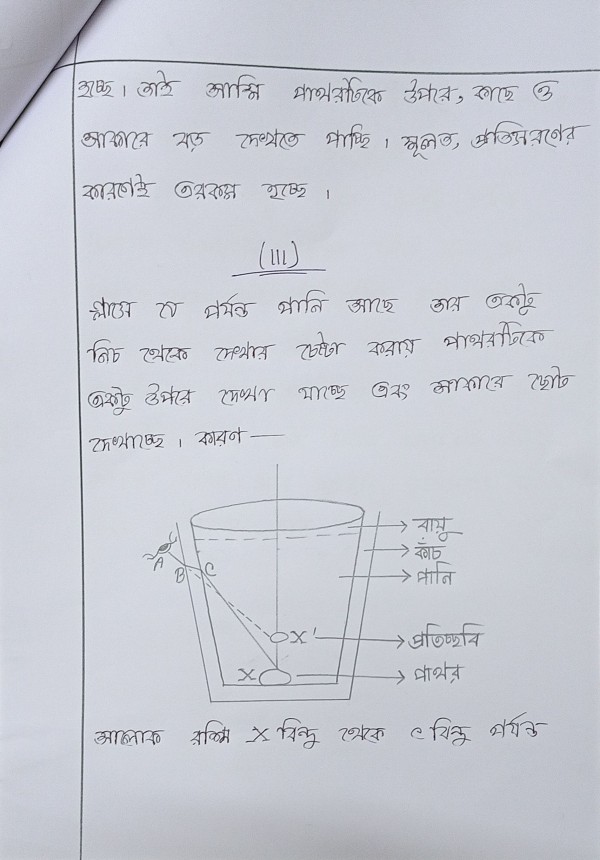 হচ্ছে। তাই আমি পাথরটিকে উপরে, কাছে ও
আকারে বড় দেখতে পাচ্ছি। মূলত, প্রতিসরণের
কারণেই এরকম হচ্ছে।
(III)
গ্লাসে যে পর্যন্ত পানি আছে তার একটু
নিচ থেকে দেখার চেষ্টা করায় পাথরটিকে
একটু উপরে দেখা যাচ্ছে এবং আকারে ছোট
দেখাচ্ছে। কারণ —
বায়ু
কাঁচ
পানি
A
B C
X' প্রতিচ্ছবি
X পাথর
আলোক রশ্মি X বিন্দু থেকে C বিন্দু পর্যন্ত